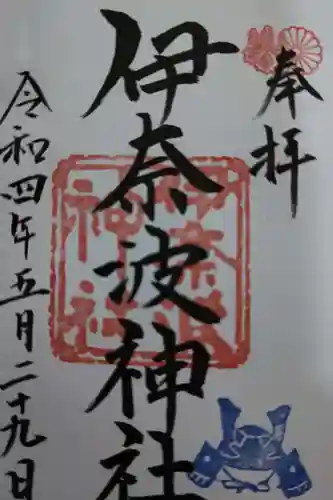 奉拝
伊奈波神社
令和四年五月二十九日
伊奈波
神社